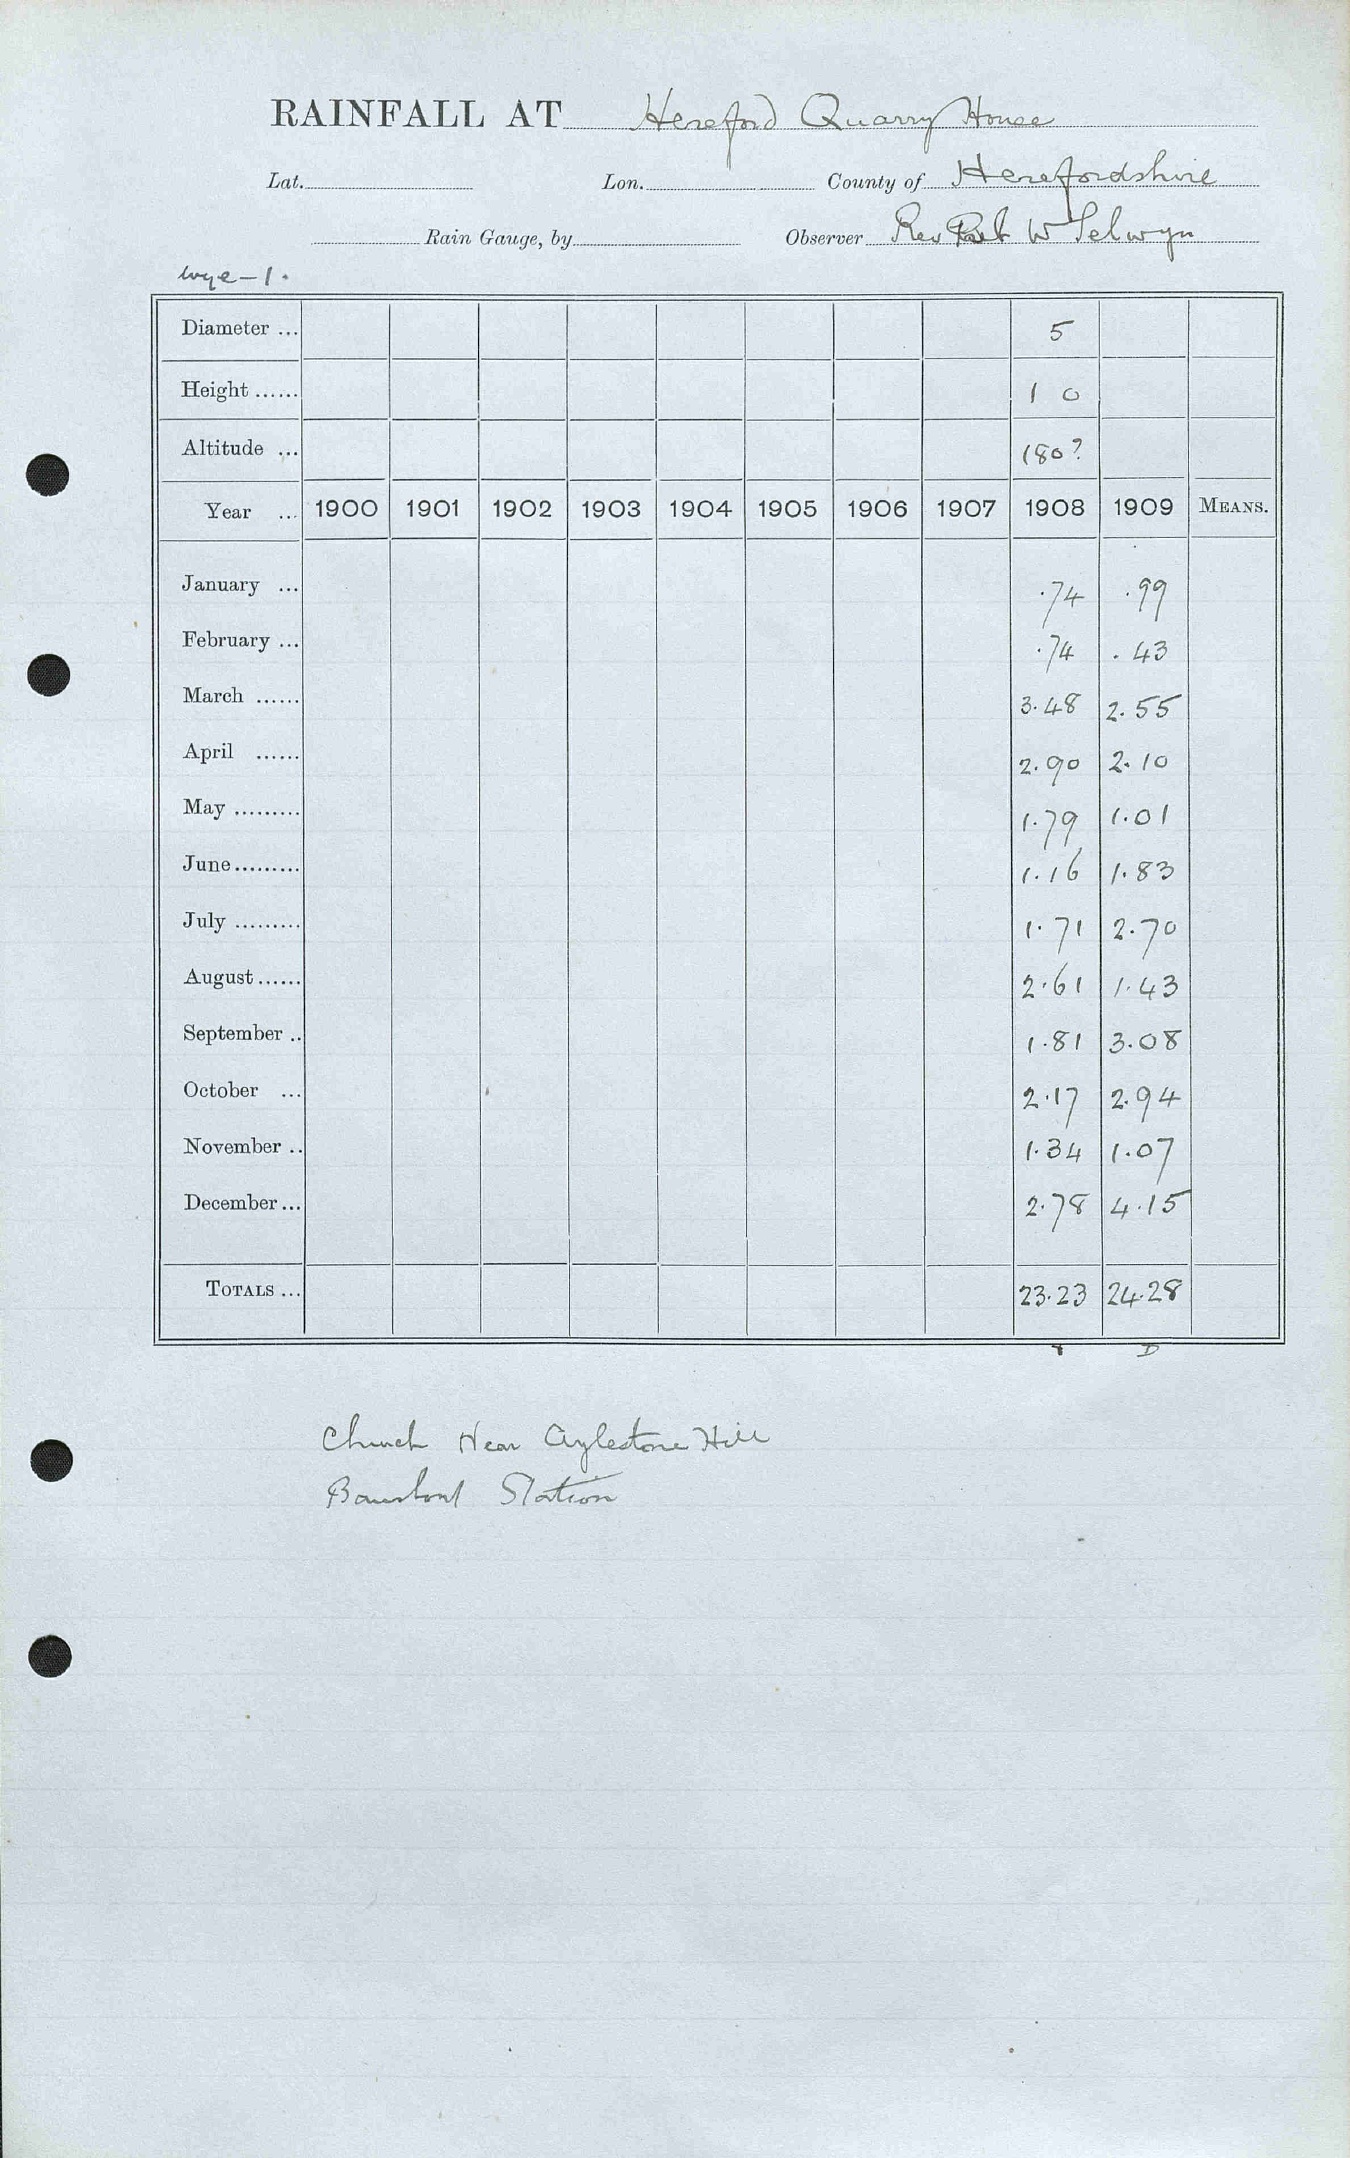 RAINFALL AT Hereford Quarry House
Lat. Lon. County of Herefordshire
Rain Gauge, by Observer Rev W Selwyn
Wye-1.
Diameter ... 5
Height ...... 1 0
Altitude ... 180?
Year ... 1900 1901 1902 1903 1904 1905 1906 1907 1908 1909 MEANS.
January ... .74 .99
February ... .74 .43
March ...... 3.48 2.55
April ...... 2.90 2.10
May ......... 1.79 1.01
June ......... 1.16 1.83
July ......... 1.71 2.70
August ...... 2.61 1.43
September .. 1.81 3.08
October ... 2.17 2.94
November .. 1.34 1.07
December ... 2.78 4.15
TOTALS ... 23.23 24.28
D
Church Near Aylestone Hill
Station